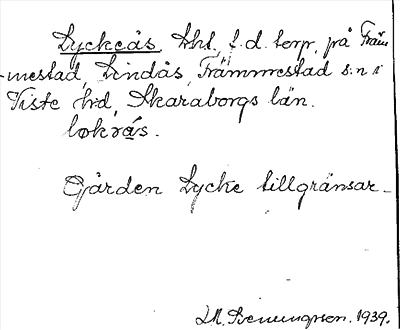 Lyckeås, lht, f.d. torp, på Främ-
mestad, Lindås, Främmestad s:n i
Viste hd, Skaraborgs län.
lɷkrås.
Gården Lycke tillgränsar.
1939.